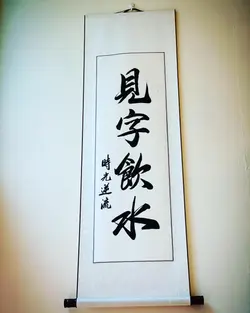 見字飲水
時光逆流